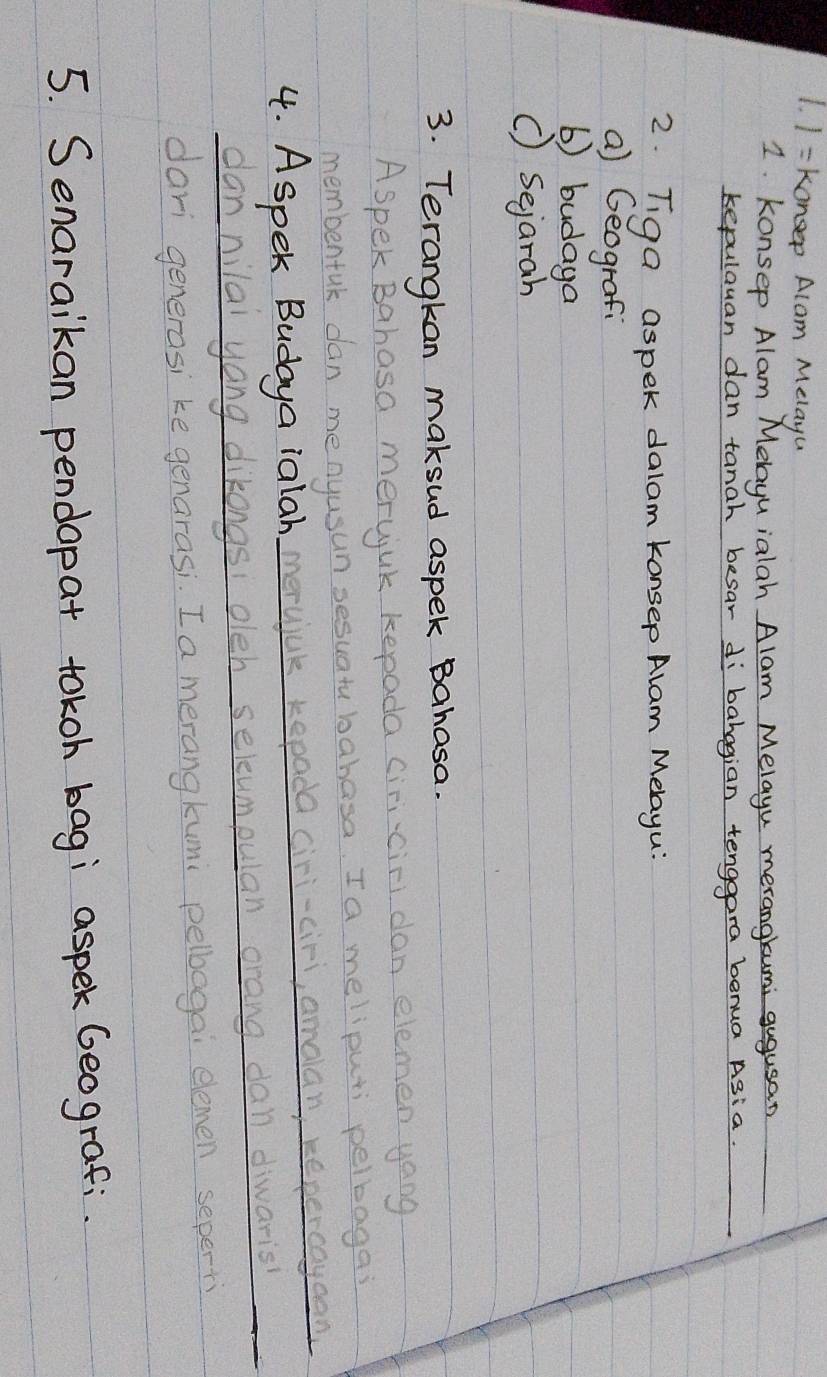 1.1 = Konsep Alam Melayu
1. Konsep Alam Melayu ialah Alam Melayu merangkumi gugusan
kepulauan dan tanah besar di bahagian tenggara benua Asia.
2. Tiga aspek dalam konsep Alam Melayu:
a) Geografi
b) budaya
c) Sejarah
3. Terangkan maksud aspek Bahasa.
Aspek Bahasa merujuk kepada ciri-ciri dan elemen yang
membentuk dan menyusun sesuatu bahasa. Ia meliputi pelbagai
4. Aspek Budaya ialah merujuk kepada ciri-ciri, amalan, kepercayaan,
dan nilai yang dikongsi oleh sekumpulan orang dan diwarisi
dari generasi ke genarasi. Ia merangkumi pelbagai elemen seperti
5. Senaraikan pendapat tokoh bagi aspek Geografi.